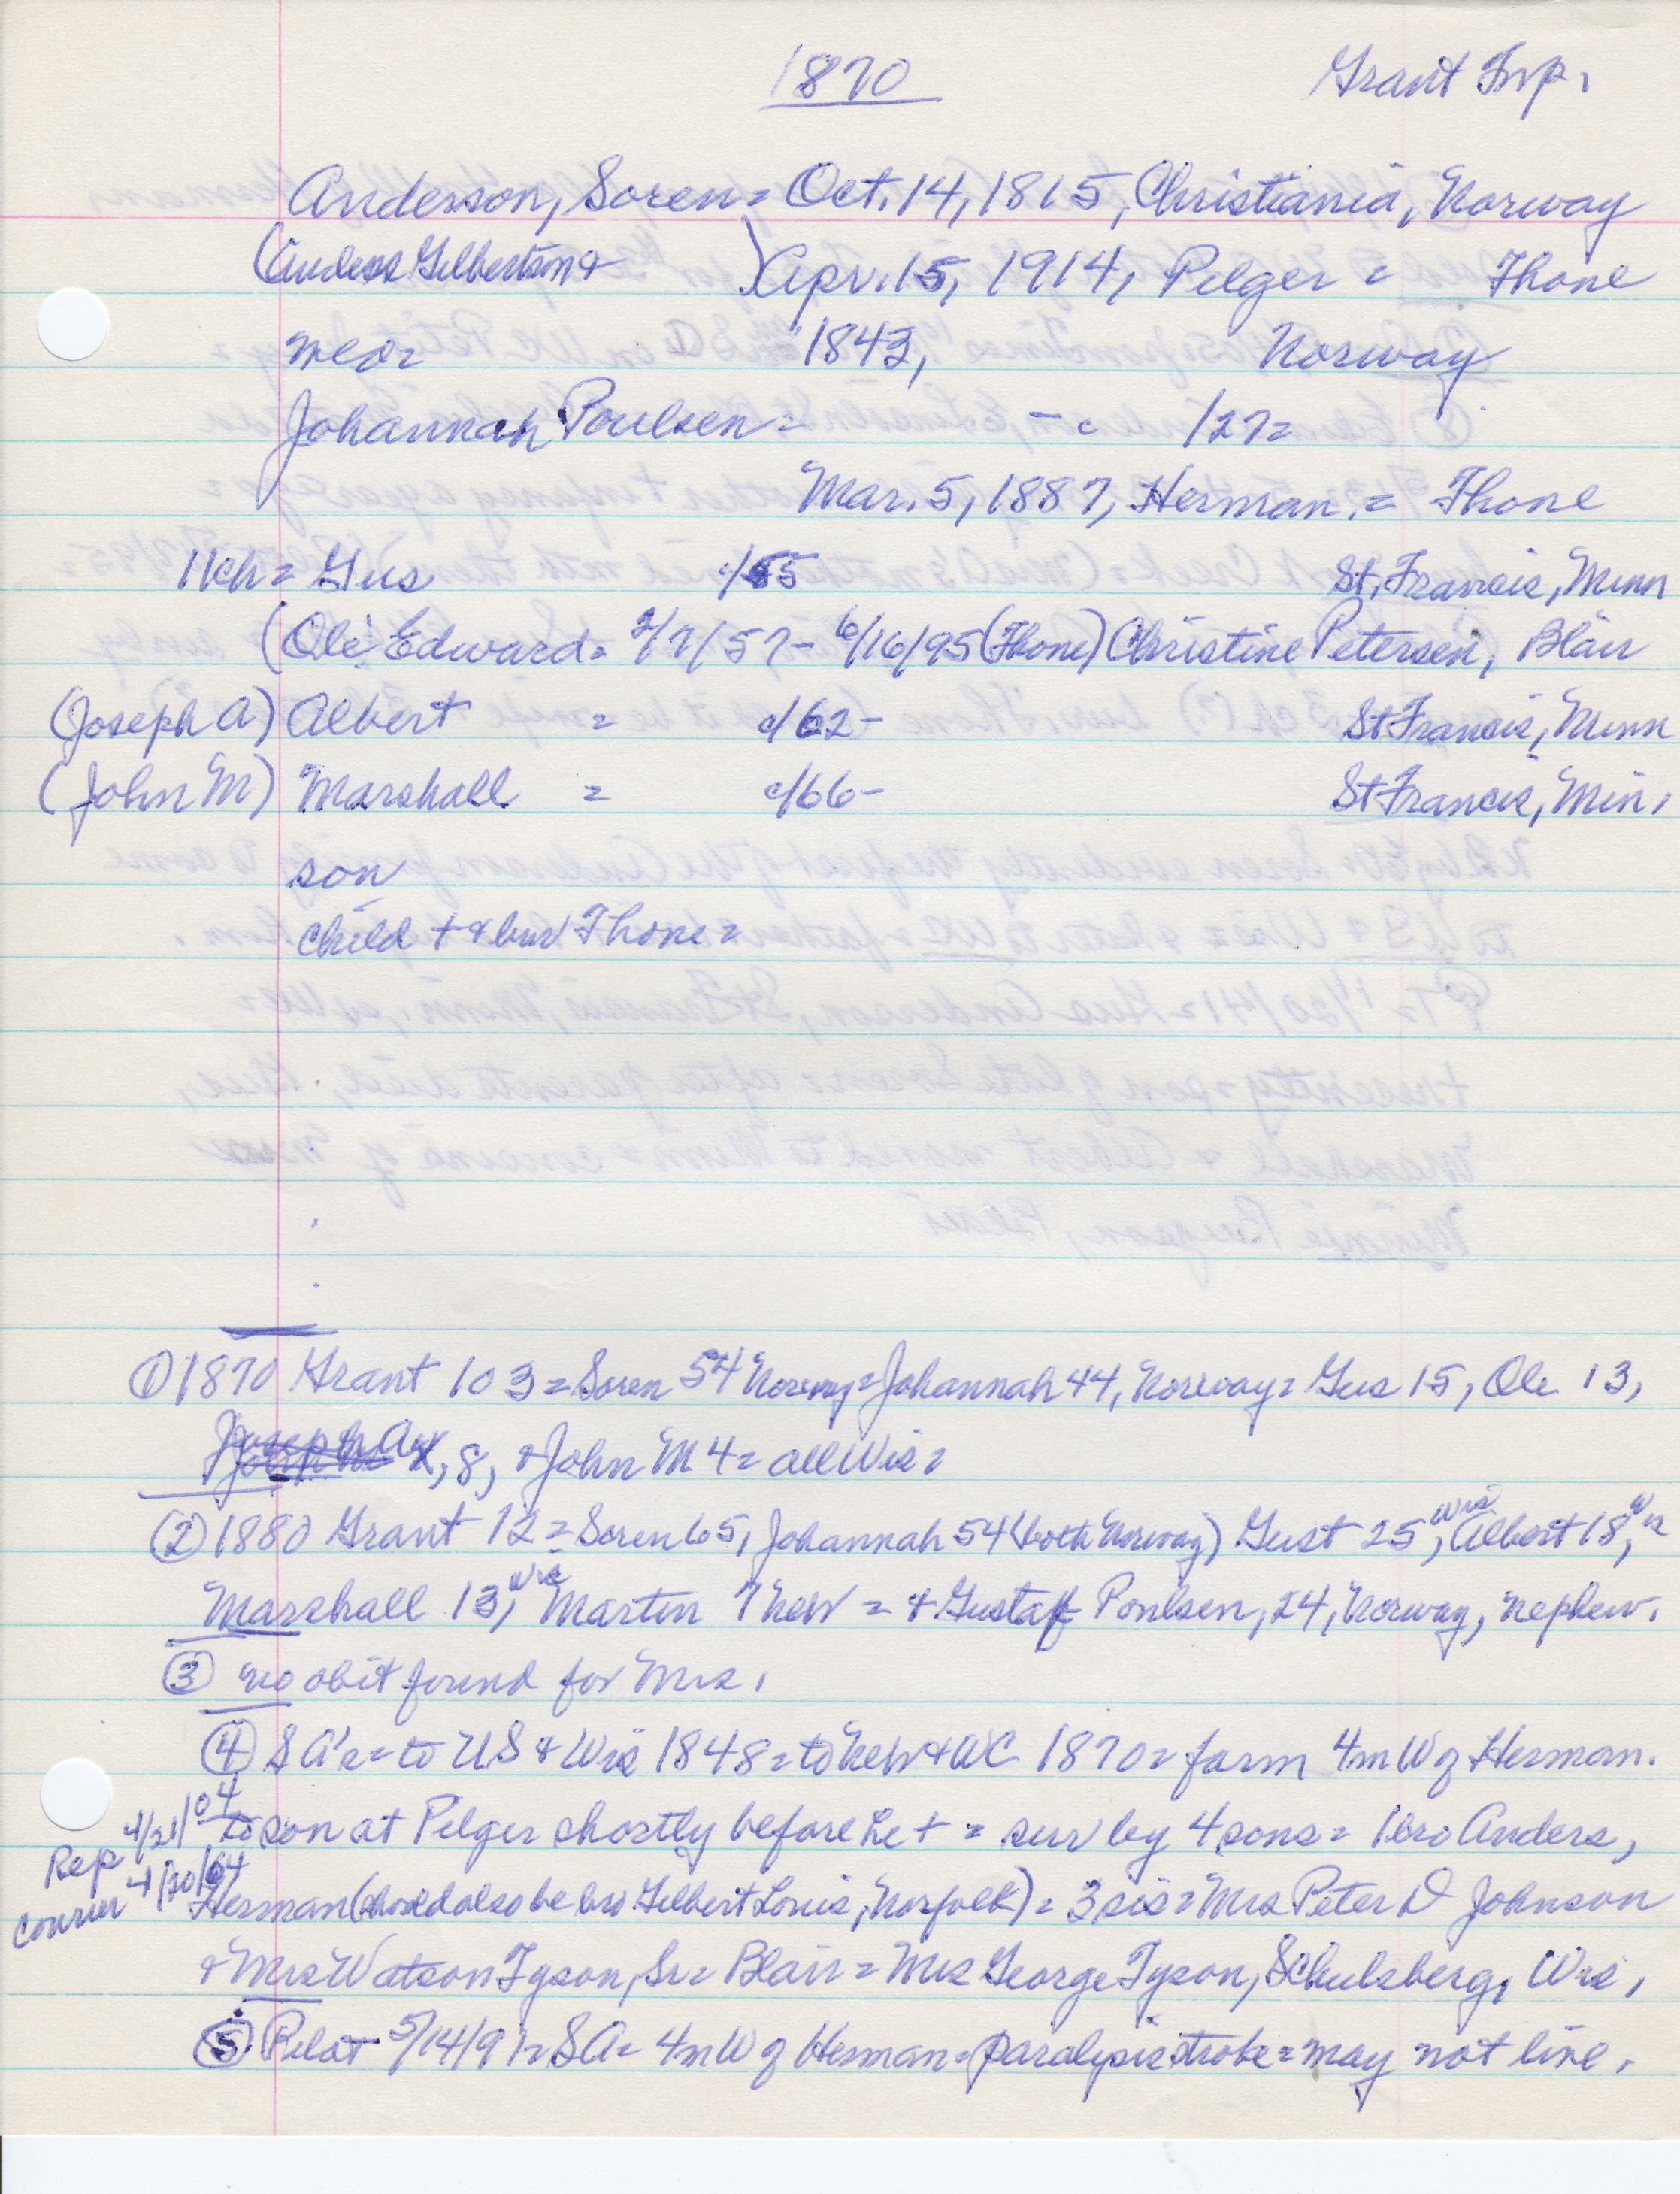 1870 Grant Twp.
Anderson, Soren = Oct. 14, 1815, Christiania, Norway
(Anders Gilbertson + ) Apr. 15, 1914, Pelger = Thone
med= 1843, Norway
Johannah Poulsen = - c /27=
Mar. 5, 1887, Herman. = Thone
11ch = Gus c/55 St. Francis, Minn
(Ole Edward = 2/7/57 - 6/16/95 (Thone) Christine Petersen, Blair
(Joseph A) Albert = c/62 - St Francis, Minn
(John M) Marshall = c/66 - St Francis, Min.
son
child + & bur Thone =
① 1870 Grant 103 = Soren 54 Norway = Johannah 44, Norway = Gus 15, Ole 13,
Joseph A, 8, & John M 4 = all Wis =
② 1880 Grant 12 = Soren 65, Johannah 54 (both Norway) Gust 25, Wis Albert 18, Wis
Marshall 13, Wis Martin 7 Neb = & Gustaf Poulsen, 24, Norway, nephew.
③ no obit found for Mrs.
④ SA's = to US & Wis 1848 = to Neb & WC 1870 = farm 4m W of Herman.
to son at Pelger shortly before he + = sur by 4 sons = 1 bro Anders,
Rep 4/21/04
Courier 4/30/04
Herman (should also be bro Gilbert Louis, Norfolk) = 3 sis = Mrs Peter D Johnson
& Mrs Watson Tyson, Sr = Blair = Mrs George Tyson, Schulsberg, Wis.
⑤ Pilot 5/14/91 = SA = 4m W of Herman = paralysis stroke = may not live.